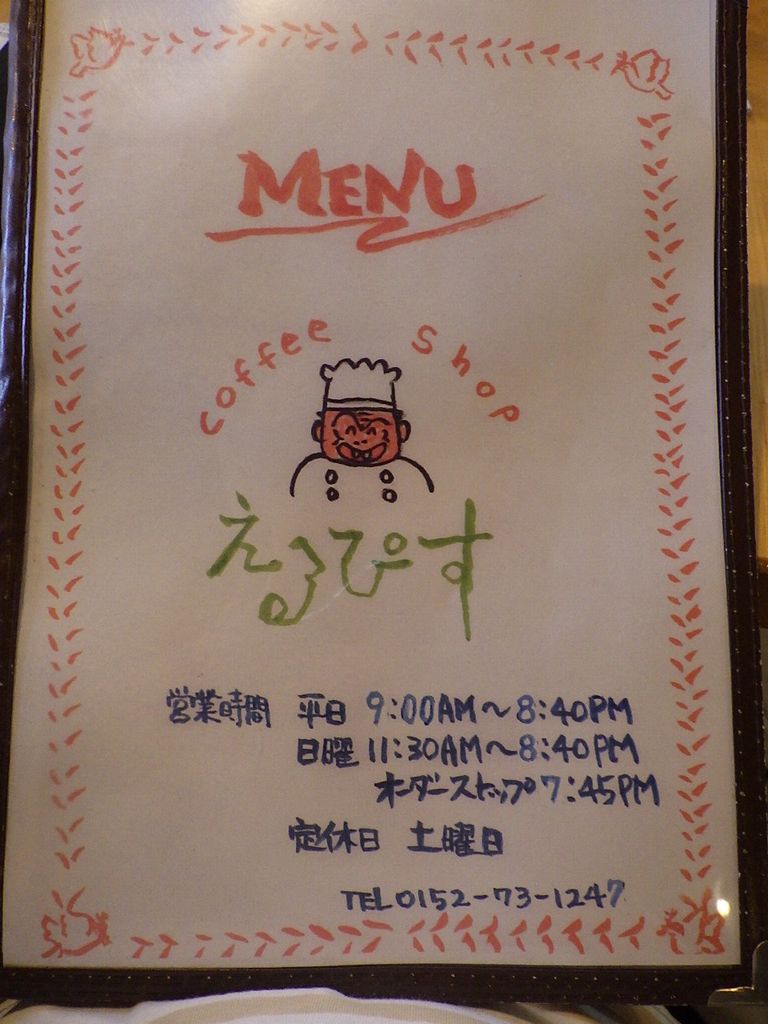 MENU
coffee shop
えるぴーす
営業時間 平日 9:00AM〜8:40PM
日曜 11:30AM〜8:40PM
オーダーストップ 7:45PM
定休日 土曜日
TEL 0152-73-1247